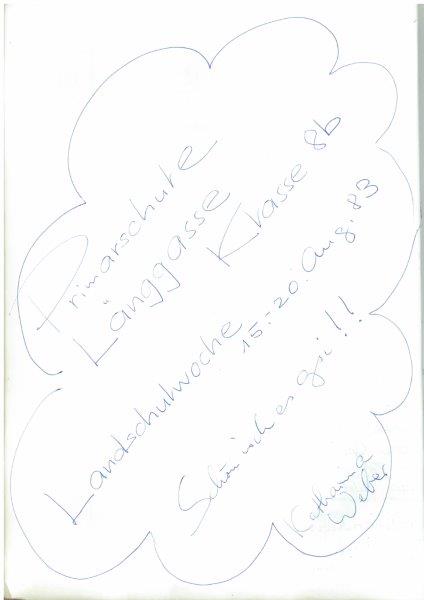 Primarschule
Länggasse
Klasse 8b
Landschulwoche
15.-20. Aug. 83
Schön isch es gsi!!
Katharina
Weber